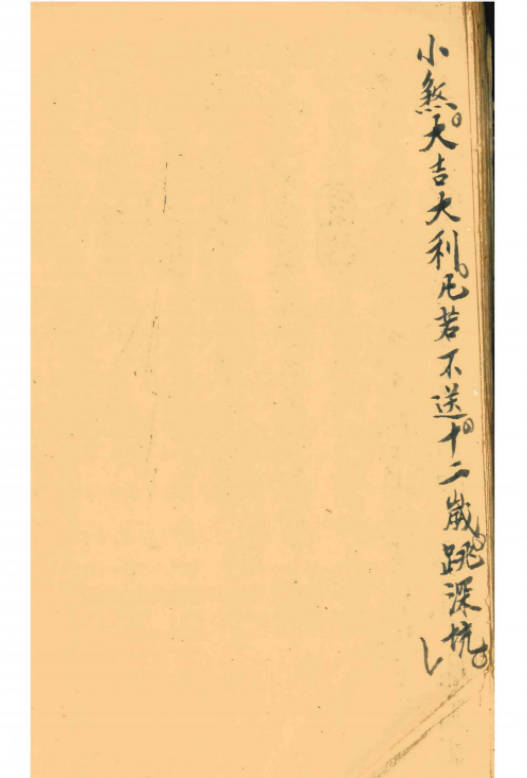 小煞大吉大利凡若不送十二歲跳深坑